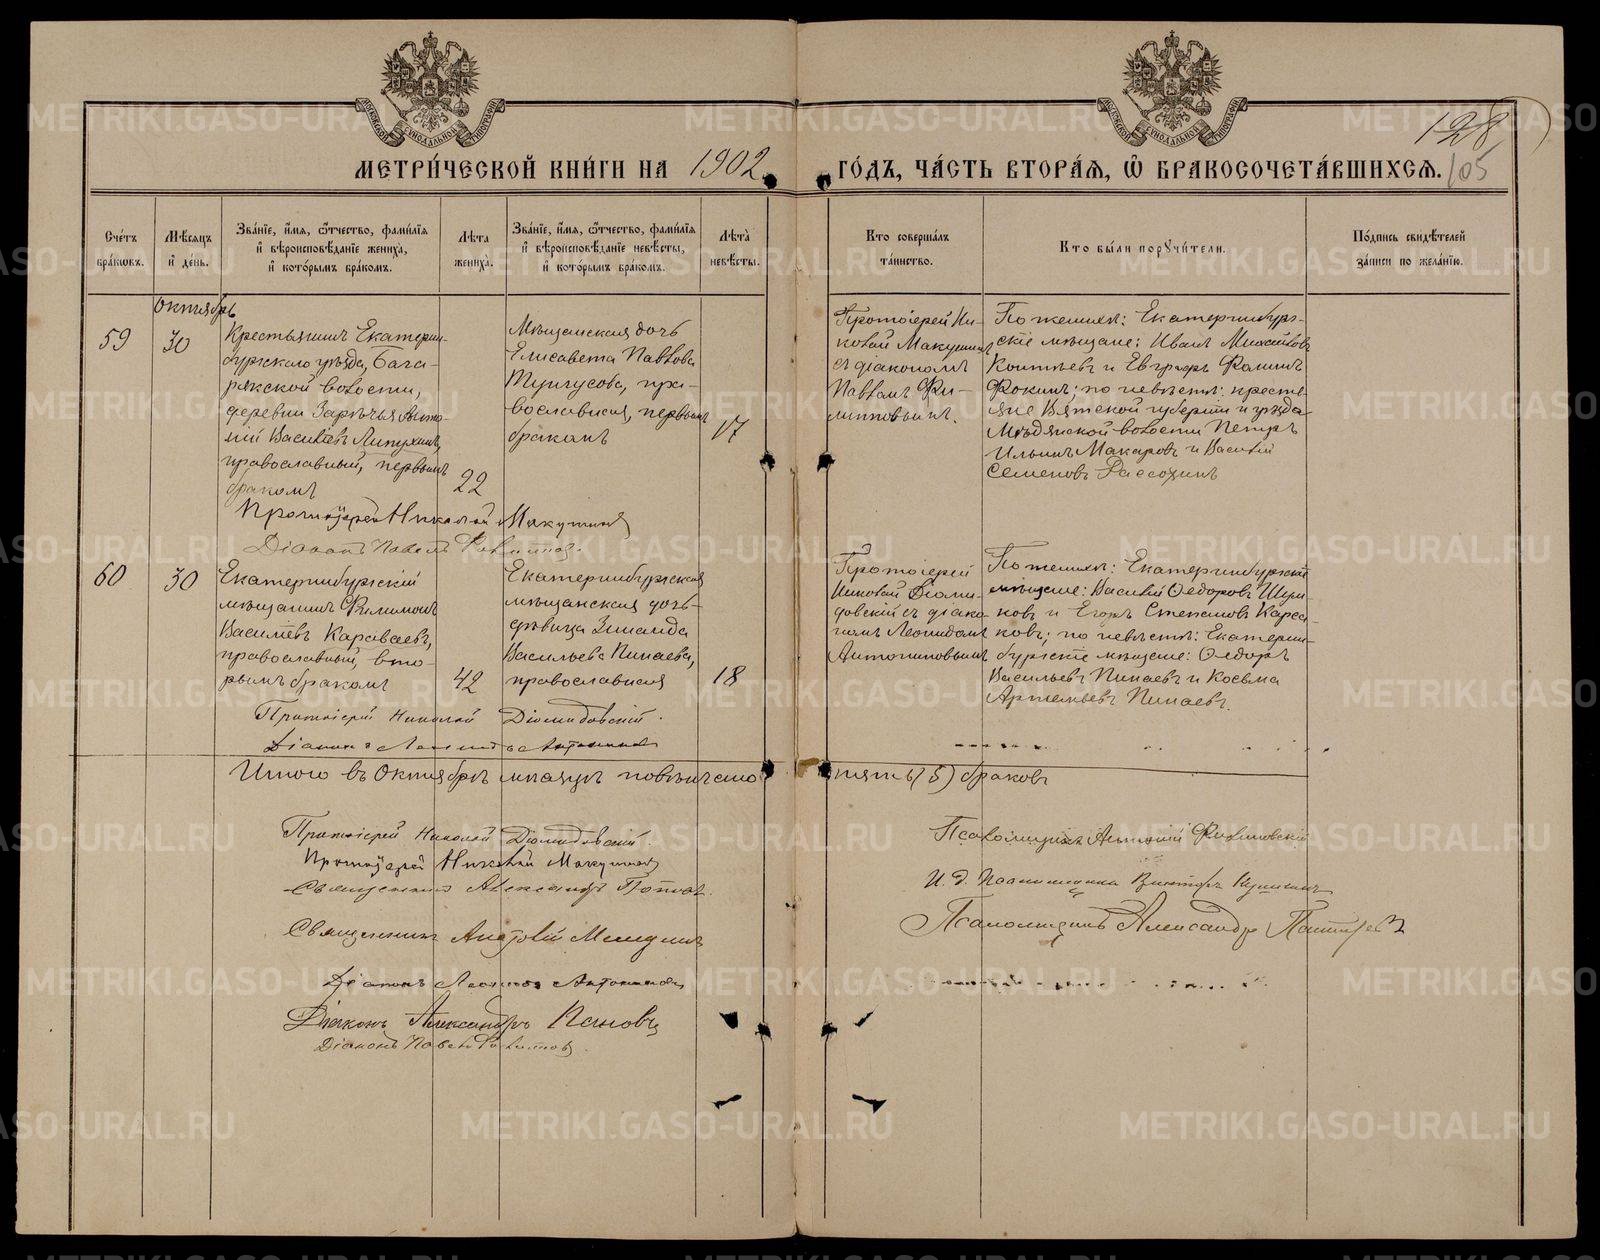 128
105
МЕТРИ́ЧЕСКОЙ КНИ́ГИ НА 1902
ГО́ДЪ, ЧА́СТЬ ВТОРА́Я, Ѽ БРАКОСОЧЕТА́ВШИХСЯ.
Сче́тъ бра́кѡвъ.
Мѣ́сяцъ и҆ де́нь.
Зва́нїе, и҆́мя, ѻ҆́тчество, фами́лїя и҆ вѣроисповѣ́данїе жениха̀, и҆ кото́рымъ бра́комъ.
Лѣ́та жениха̀.
Зва́нїе, и҆́мя, ѻ҆́тчество, фами́лїя и҆ вѣроисповѣ́данїе невѣ́сты, и҆ кото́рымъ бра́комъ.
Лѣ́та невѣ́сты.
Кто̀ соверша́лъ та́инство.
Кто̀ бы́ли порꙋчи́тели.
По́дпись свидѣ́телей за́писи по жела́нїю.
Октябрь
59
30
Крестьянинъ Екатерин-
бургскаго уѣзда, Бага-
рякской волости,
деревни Зарѣчья Анто-
ній Васильевъ Липухинъ,
православный, первымъ
бракомъ
22
Мѣщанская дочь
Елисавета Павлова
Тунгусова, пра-
вославная, первымъ
бракомъ
17
Протоіерей Ни-
колай Макушинъ
съ діакономъ
Павломъ Фи-
липповымъ.
По женихѣ: Екатеринбург-
скіе мѣщане: Иванъ Михайловъ
и Евграфъ Фоминъ
Фокинъ; по невѣстѣ: кресть-
яне Вятской губерніи и уѣзда
Мѣдянской волости Петръ
Ильинъ Макаровъ и Василій
Семеновъ Рассохинъ
Протоіерей Николай Макушинъ
Діаконъ Павелъ Филипповъ.
60
30
Екатеринбургскій
мѣщанинъ Филимонъ
Васильевъ Караваевъ,
православный, вто-
рымъ бракомъ
42
Екатеринбургская
мѣщанская дочь-
дѣвица Зинаида
Васильева Пинаева,
православная
18
Протоіерей
Николай Діоми-
довскій съ діако-
номъ Леонидомъ
Антониновымъ
По женихѣ: Екатеринбургскіе
мѣщане: Василій Ѳедоровъ
и Егоръ Степановъ
по невѣстѣ: Екатерин-
бургскіе мѣщане: Ѳедоръ
Васильевъ Пинаевъ и Косьма
Артемьевъ Пинаевъ.
Протоіерей Николай Діомидовскій.
Діаконъ Леонидъ Антониновъ
Итого въ Октябрѣ мѣсяцѣ повѣнчано
пять (5) браковъ
Протоіерей Николай Діомидовскій.
Протоіерей Николай Макушинъ
Священникъ Александръ Поповъ.
Священникъ Анатолій
Діаконъ Леонидъ Антониновъ
Діаконъ Александръ Пановъ
Діаконъ Павелъ Филипповъ.
Псаломщикъ Антоній
И. д. псаломщика Викторъ
Псаломщикъ Александръ
METRIKI.GASO-URAL.RU